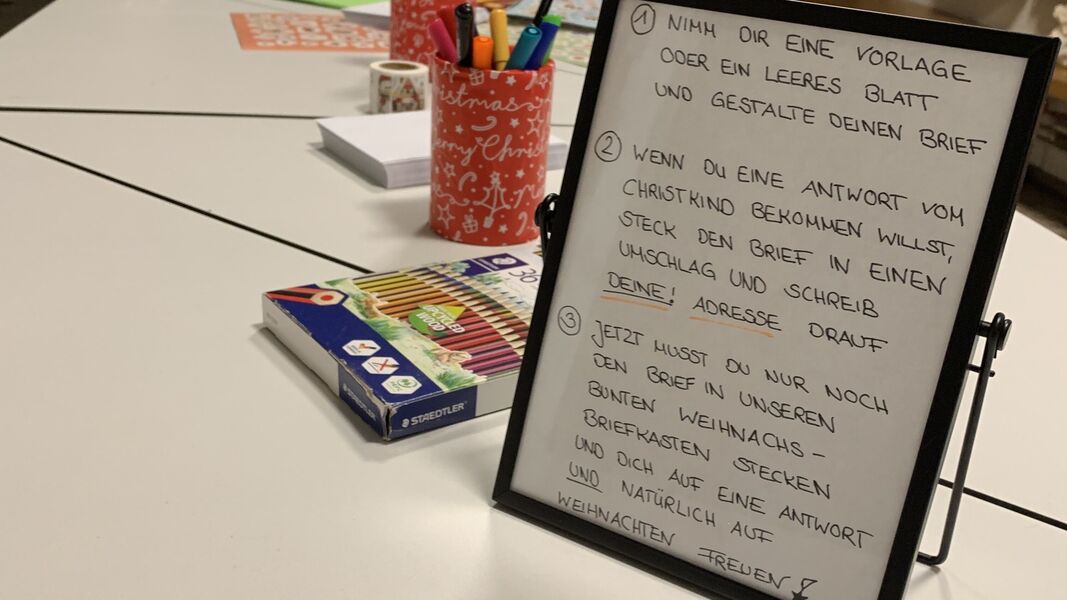 ① NIMM DIR EINE VORLAGE
ODER EIN LEERES BLATT
UND GESTALTE DEINEN BRIEF
② WENN DU EINE ANTWORT VOM
CHRISTKIND BEKOMMEN WILLST,
STECK DEN BRIEF IN EINEN
UMSCHLAG UND SCHREIB
DEINE! ADRESSE DRAUF
③ JETZT MUSST DU NUR NOCH
DEN BRIEF IN UNSEREN
BUNTEN WEIHNACHS-
BRIEFKASTEN STECKEN
UND DICH AUF EINE ANTWORT
UND NATÜRLICH AUF
WEIHNACHTEN FREUEN!
ristmas
erry Chris
36
UPCYCLED
WOOD
STAEDTLER